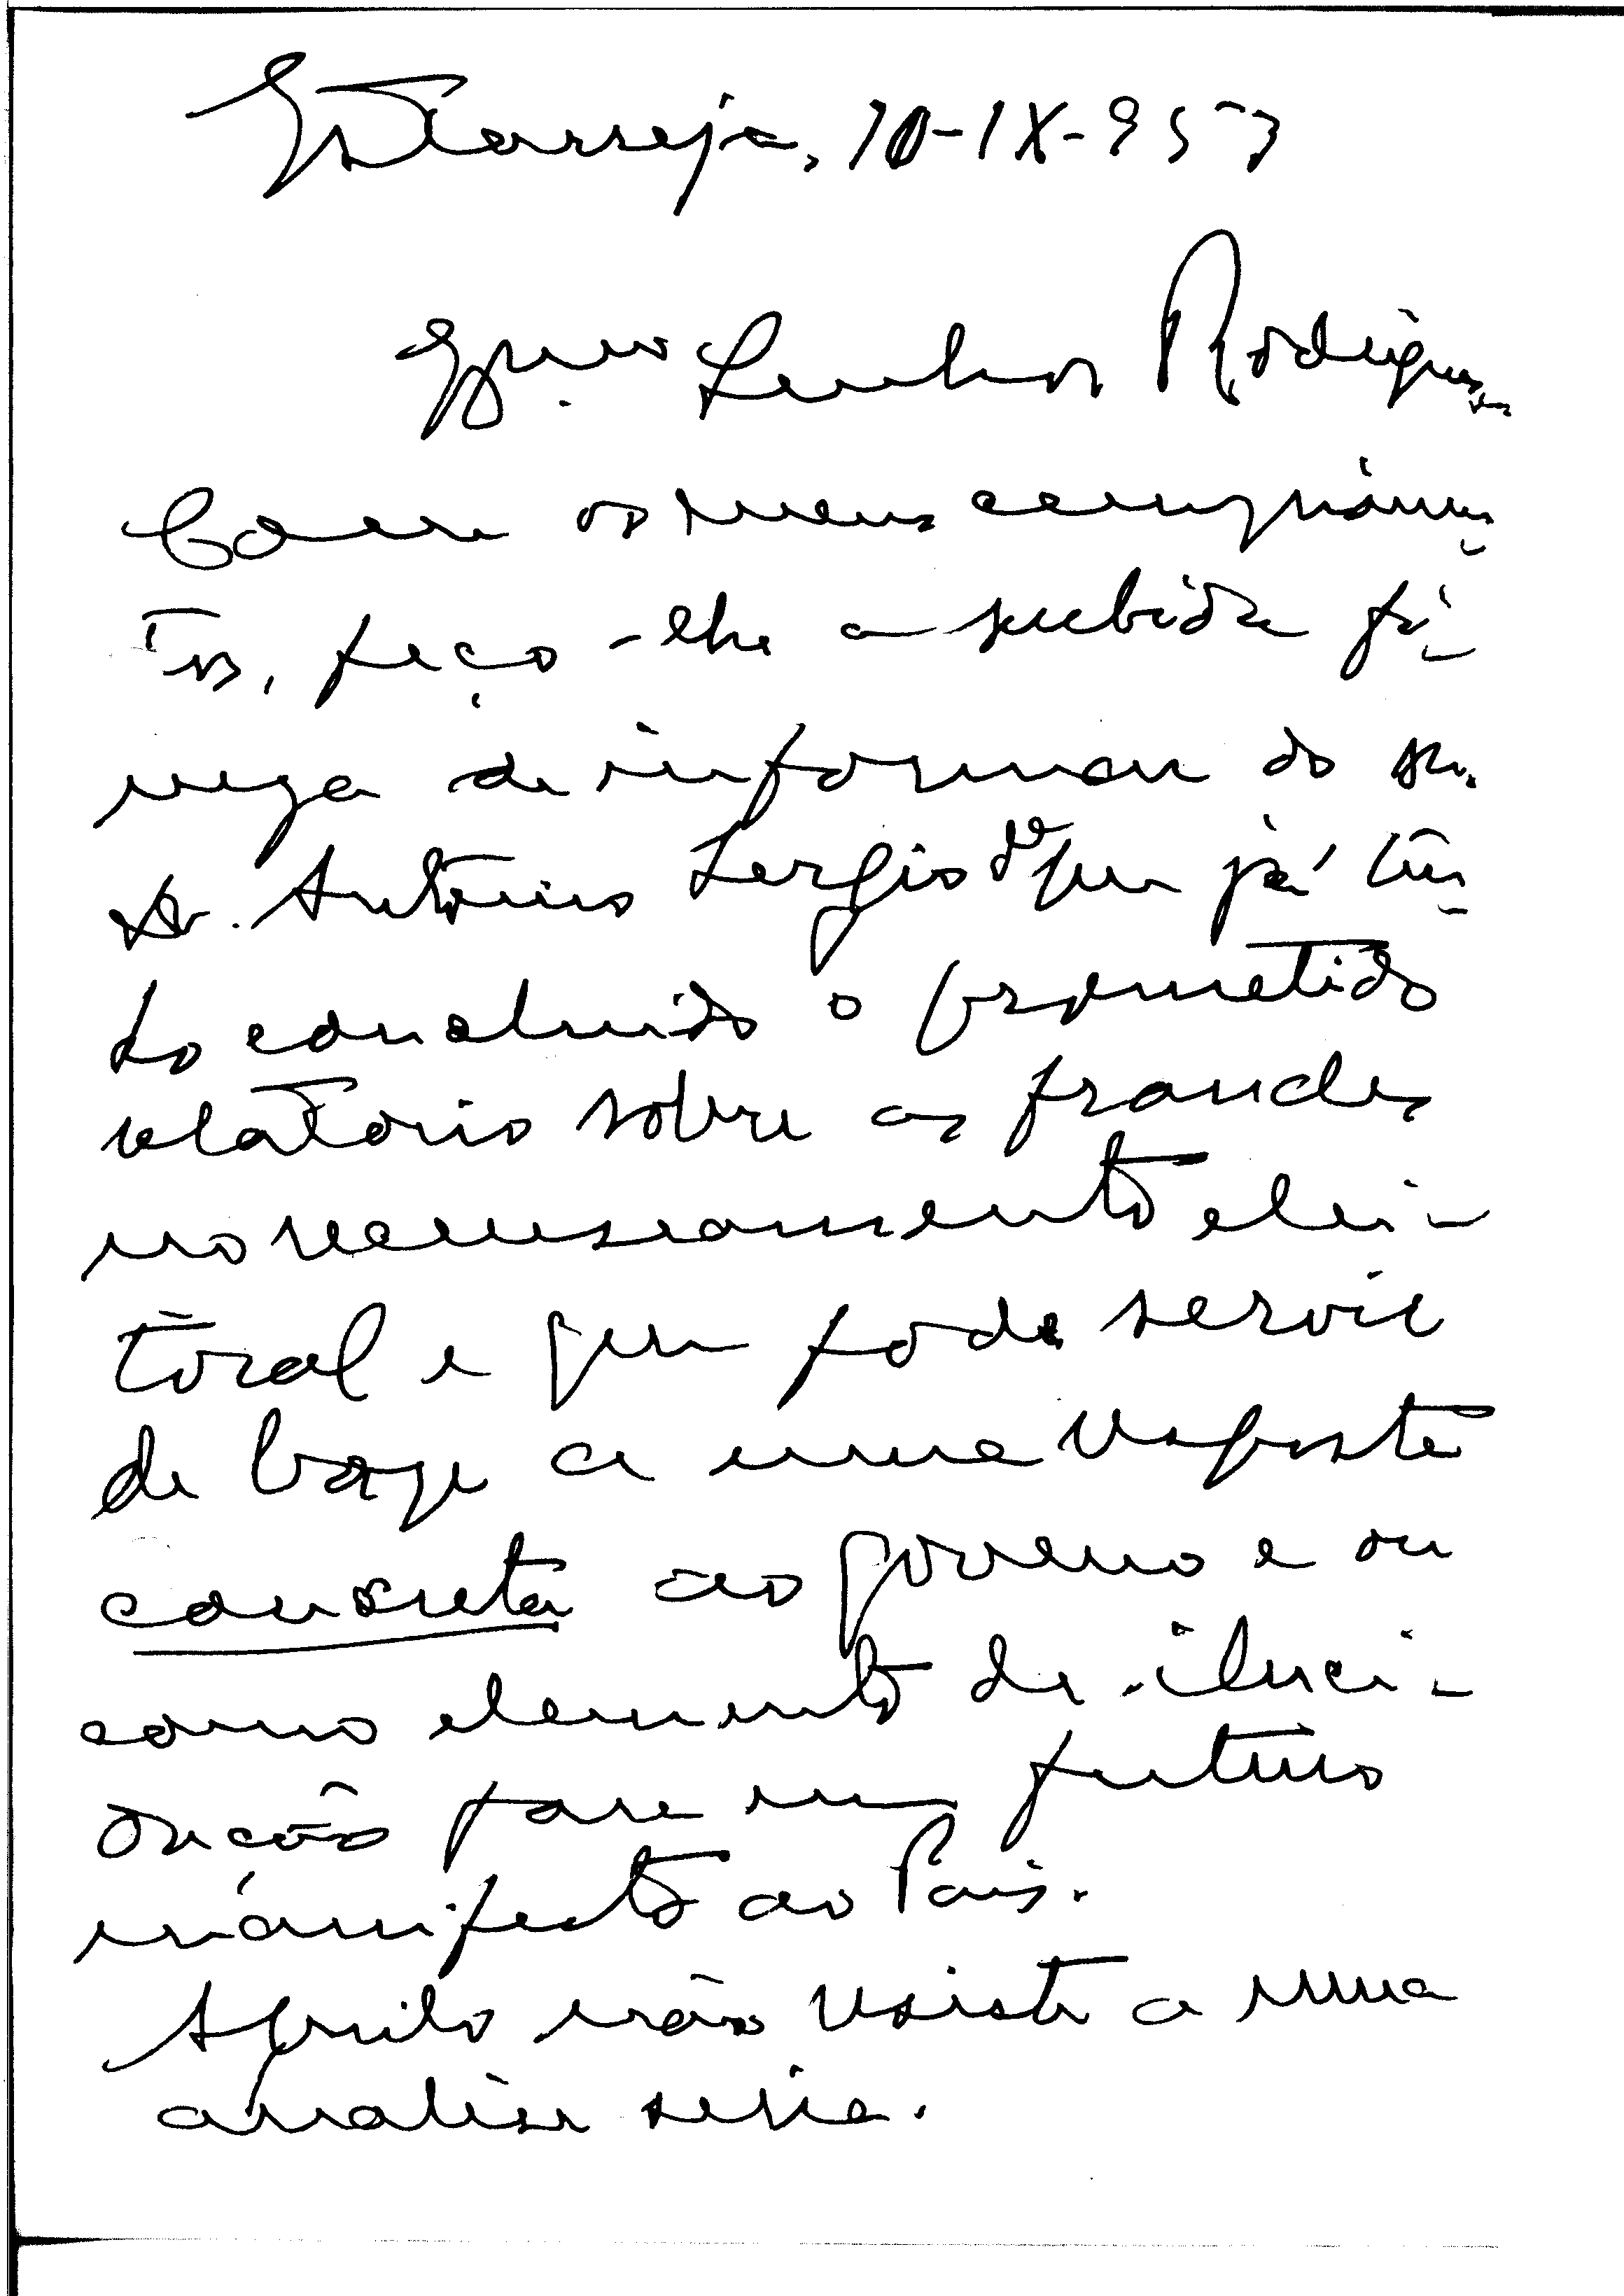 Estarreja, 10-IX-957
Exmo Senhor Rodrigues
Com os meus cumprimen-
tos, peço-lhe a subida fi-
neza de informar do sr.
Dr. António Sergio de que já te-
do concluido o prometido
relatório sobre as fraudes
no recenseamento elei-
toral e que pode servir
de base a uma resposta
concreta ao governo e ou
como elemento de iluci-
dação para um futuro
manifesto ao País.
Aquilo não resiste a uma
análise séria.